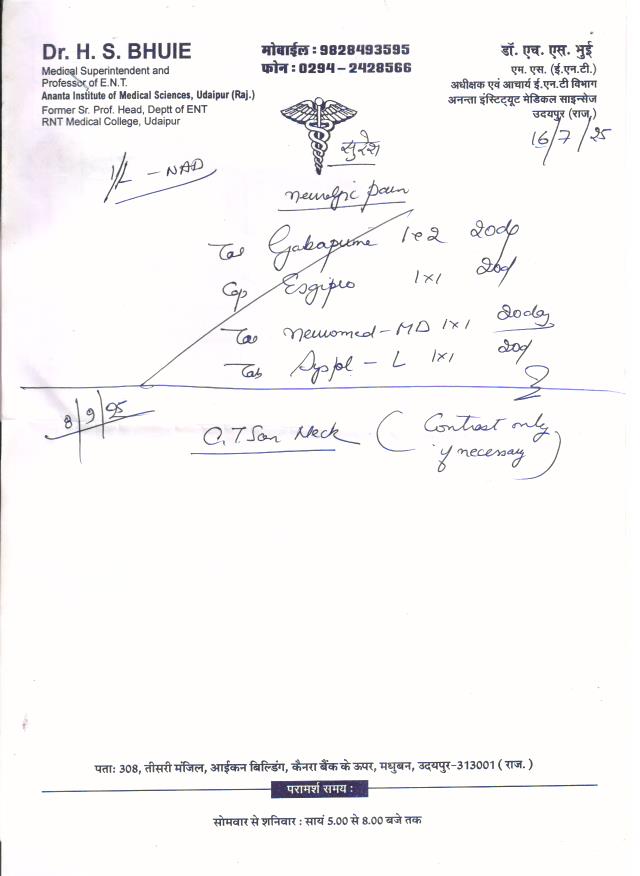 Dr. H. S. BHUIE
Medical Superintendent and
Professor of E.N.T.
Ananta Institute of Medical Sciences, Udaipur (Raj.)
Former Sr. Prof. Head, Deptt of ENT
RNT Medical College, Udaipur
मोबाईल : 9828493595
फोन : 0294-2428566
डॉ. एच. एस. भुई
एम. एस. (ई.एन.टी.)
अधीक्षक एवं आचार्य ई.एन.टी विभाग
अनन्ता इंस्टिट्यूट मेडिकल साइन्सेज
उदयपुर (राज.)
16/7/25
सुरेश
I/L - NAD
pain
Tab 1 e 2 20d
Cap Esgipro 1x1 20d
Tab Neuromed-MD 1x1 20day
Tab - L 1x1 20d
8/9/25
C.T Scan Neck (Contrast only
if necessary)
पता: 308, तीसरी मंजिल, आईकन बिल्डिंग, कैनरा बैंक के ऊपर, मधुबन, उदयपुर-313001 ( राज. )
परामर्श समय :
सोमवार से शनिवार : सायं 5.00 से 8.00 बजे तक